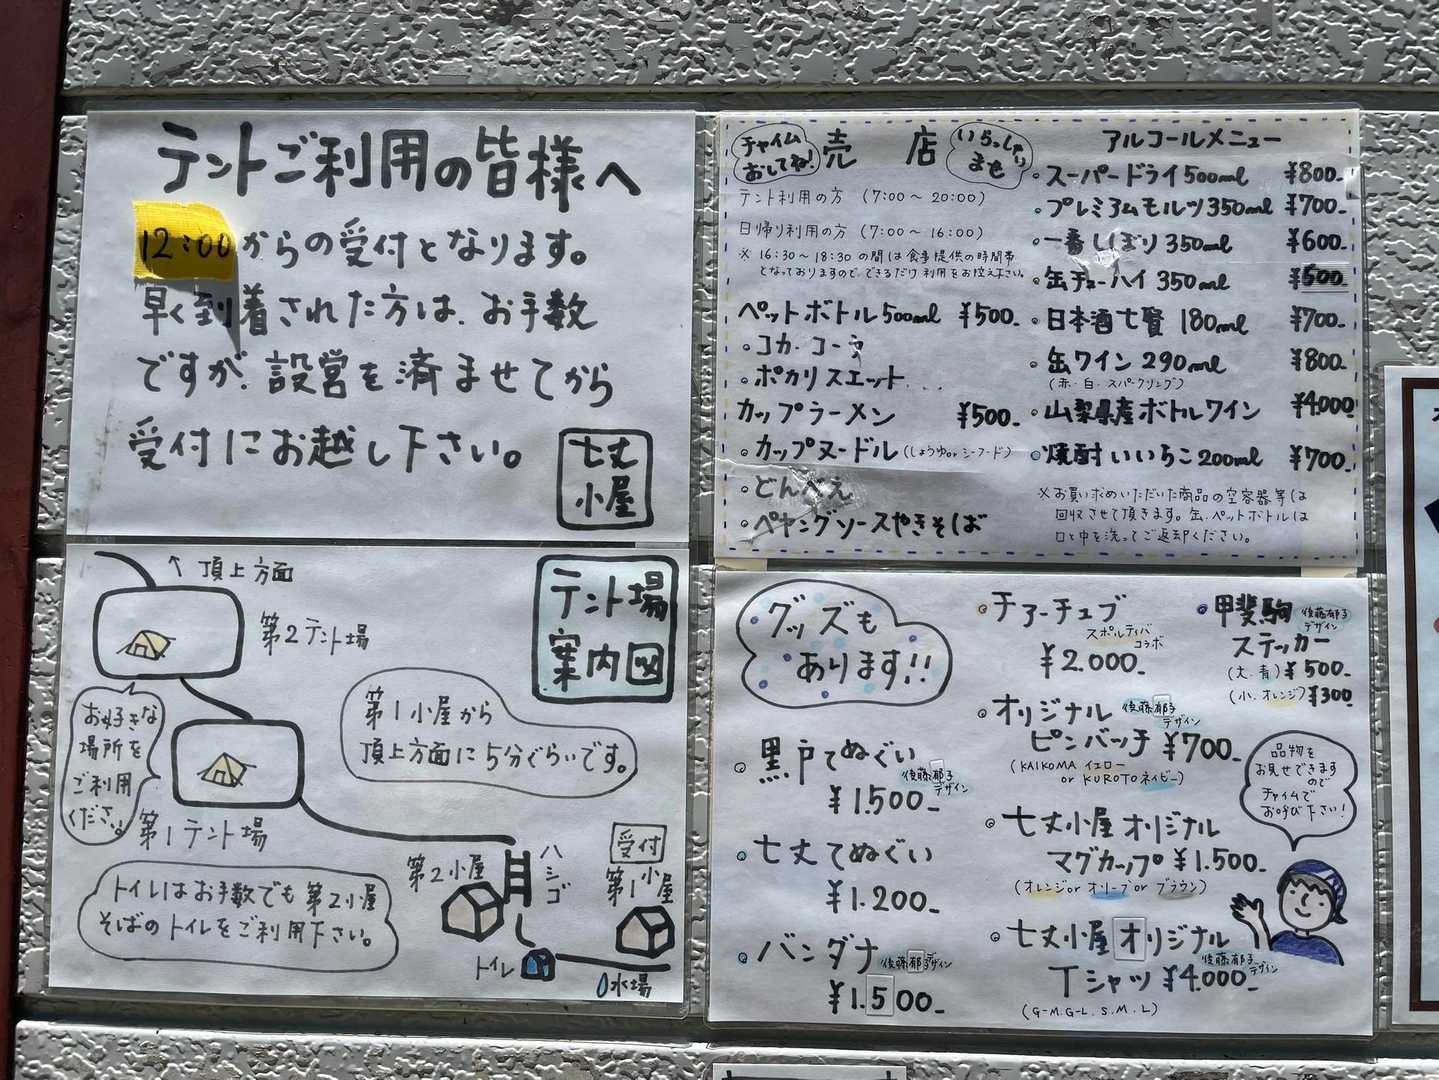 テントご利用の皆様へ
12:00からの受付となります。
早く到着された方は、お手数
ですが、設営を済ませてから
受付にお越し下さい。
七丈
小屋
チャイム
おしてね!
売店
いらっしゃい
ませ
テント利用の方 (7:00〜20:00)
日帰り利用の方 (7:00〜16:00)
※16:30〜18:30の間は食事提供の時間帯
となっておりますので、できるだけ利用をお控え下さい。
ペットボトル500ml ¥500-
・コカ・コーラ
・ポカリスエット...
カップラーメン ¥500-
・カップヌードル(しょうゆorシーフード)
・どんべえ
・ペヤングソースやきそば
アルコールメニュー
・スーパードライ500ml ¥800-
・プレミアムモルツ350ml ¥700-
・一番しぼり350ml ¥600
・缶チューハイ350ml ¥500
・日本酒七賢 180ml ¥700-
・缶ワイン290ml ¥800-
(赤・白・スパークリング)
・山梨県産ボトルワイン ¥4000
・焼酎いいちこ200ml ¥700-
※お買い求めいただいた商品の空容器等は
回収させて頂きます。缶、ペットボトルは
口と中を洗ってご返却ください。
テント場
案内図
↑頂上方面
第2テント場
お好きな
場所を
ご利用
ください。
第1テント場
第1小屋から
頂上方面に5分ぐらいです。
トイレはお手数でも第2小屋
そばのトイレをご利用下さい。
第2小屋
ハシゴ
受付
第1小屋
トイレ
水場
グッズも
あります!!
・黒戸てぬぐい
後藤郁子
デザイン
¥1.500-
・七丈てぬぐい
¥1.200-
・バンダナ 後藤郁子デザイン
¥1.500-
・チアーチュブ
スポルティバ
コラボ
¥2.000-
・オリジナル 後藤郁子
デザイン
ピンバッチ ¥700-
(KAIKOMA イエロー
or KUROTOネイビー)
・七丈小屋オリジナル
マグカップ ¥1.500-
(オレンジorオリーブorブラウン)
・七丈小屋オリジナル
後藤郁子
デザイン
Tシャツ ¥4.000-
(G-M.G-L.S.M.L)
・甲斐駒 後藤郁子
デザイン
ステッカー
(大.青)¥500-
(小.オレンジ)¥300
品物を
お見せできます
ので
チャイムで
お呼び下さい!